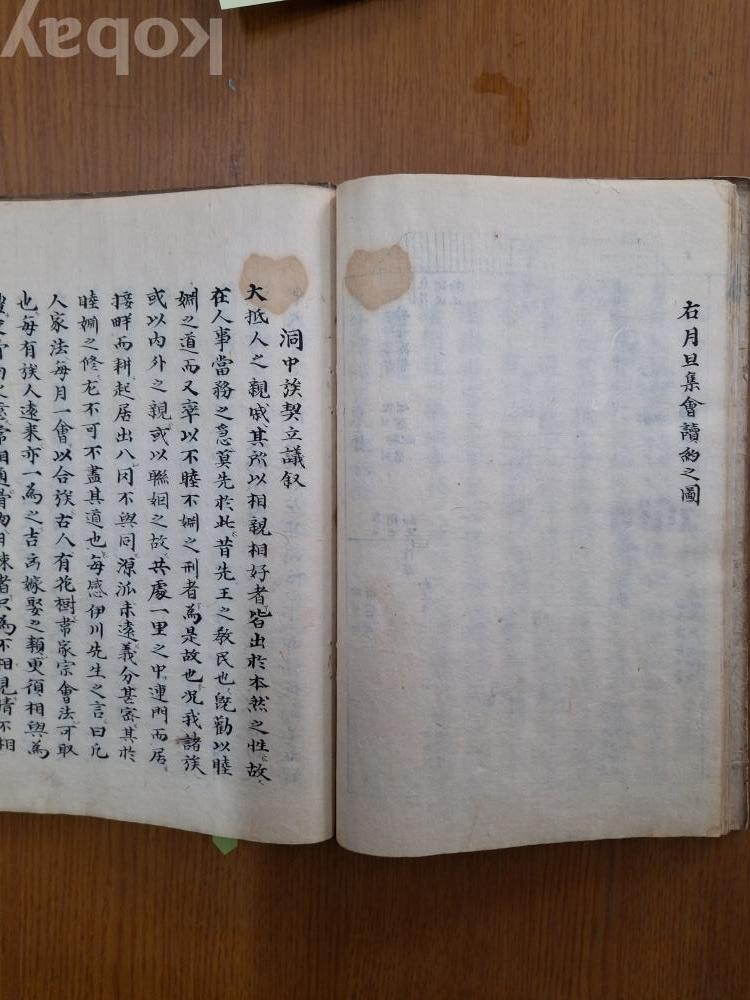 右月旦集會讀約之圖
洞中族契立議叙
大抵人之親戚其所以相親相好者皆出於本然之性故
在人事當務之急莫先於此昔先王之敎民也旣勸以睦
婣之道而又率以不睦不婣之刑者爲是故也况我諸族
或以內外之親或以聯姻之故共處一里之中連門而居
接畔而耕起居出入罔不與同源派未遠義分甚密其於
睦婣之修尤不可不盡其道也每感伊川先生之言曰凡
人家法每月一會以合族古人有花樹韋家宗會法可取
也每有族人遠來亦一爲之吉凶嫁娶之類更須相與爲
骨肉之意常相通骨肉日疎者只爲不相見情不相
kobay